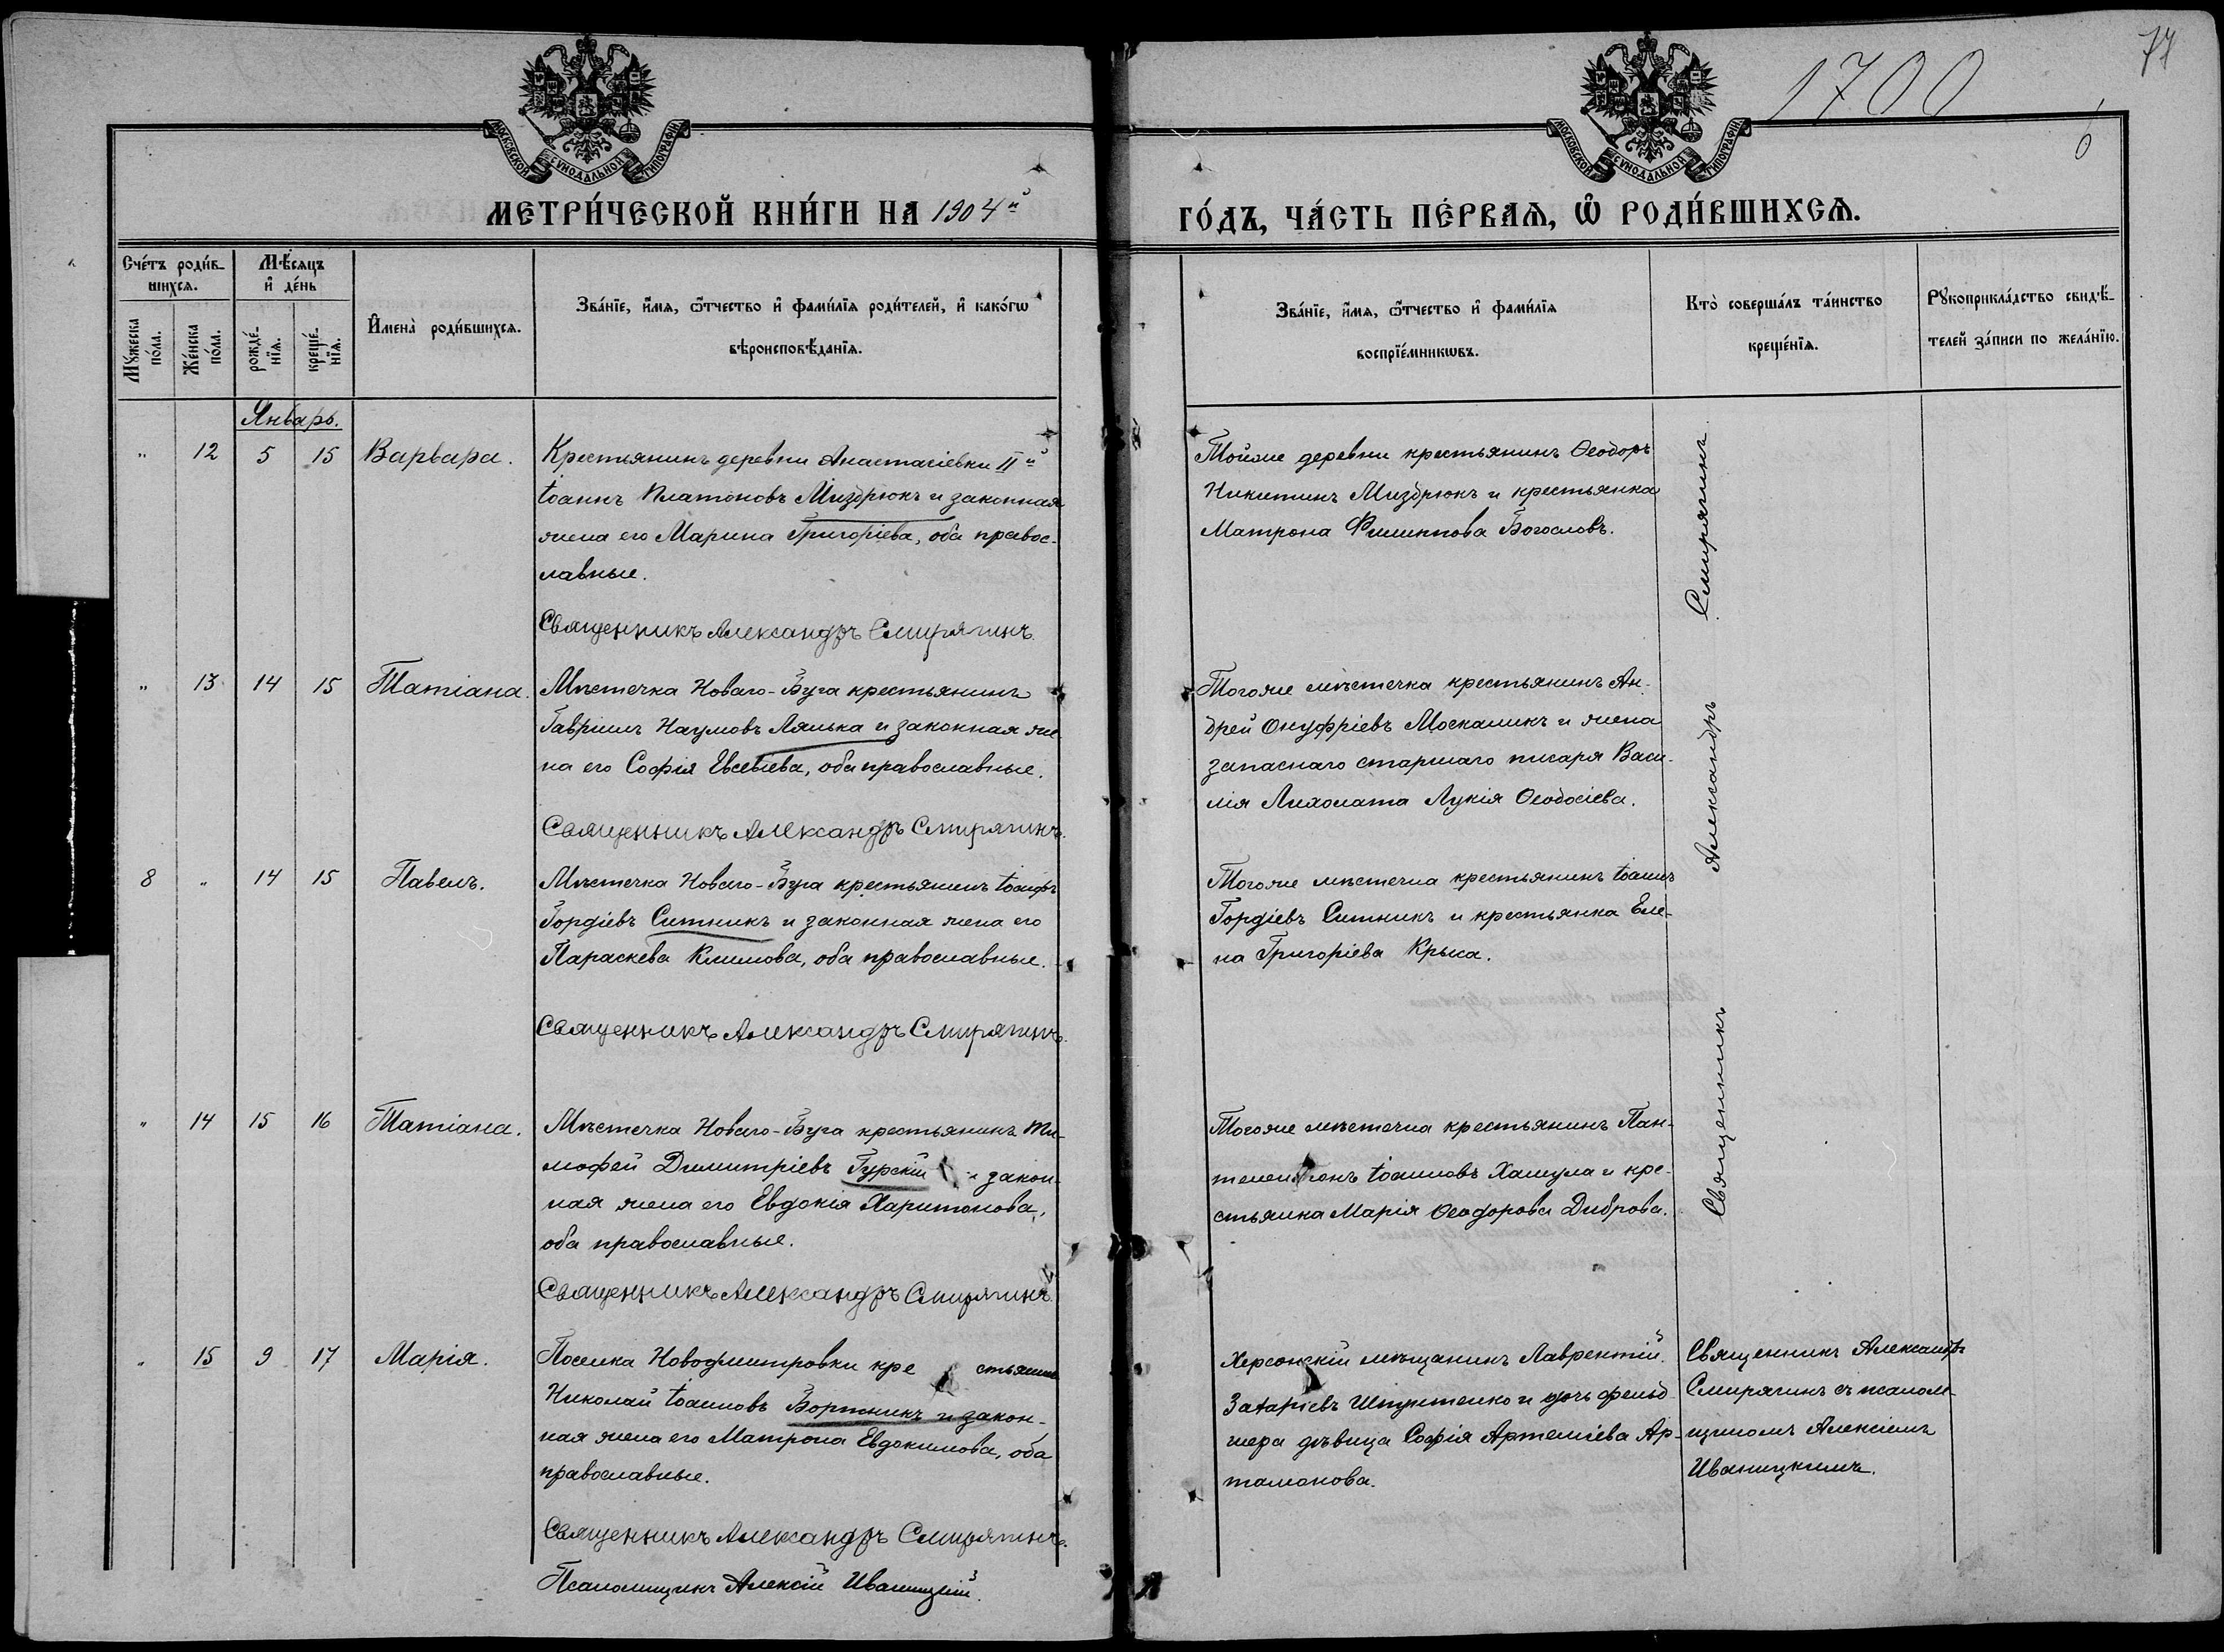 77
1700
6
МОСКОВСКОЙ СѴНОДАЛЬНОЙ ТИПОГРАФІИ
МОСКОВСКОЙ СѴНОДАЛЬНОЙ ТИПОГРАФІИ
МЕТРИ́ЧЕСКОЙ КНИ́ГИ НА 1904й
ГО́ДЪ, ЧА́СТЬ ПЕ́РВАѦ, Ѽ РОДИ́ВШИХСѦ.
Сче́тъ роди́в-
шихсѧ.
Мѣ́сѧцъ
и де́нь
Мꙋ́жеска по́ла.
Же́нска по́ла.
рожде́-нїѧ.
креще́-нїѧ.
Имена̀ роди́вшихсѧ.
Зва́нїе, и́мѧ, ѻ́тчество и фами́лїѧ роди́телей, и како́гѡ
вѣроисповѣ́данїѧ.
Зва́нїе, и́мѧ, ѻ́тчество и фами́лїѧ
воспрїе́мникѡвъ.
Кто̀ соверша́лъ та́инство
креще́нїѧ.
Рꙋкоприкла́дство свидѣ́-
телей за́писи по жела́нїю.
Январь.
" 12 5 15 Варвара.
Крестьянинъ деревни Анастасіевки II й
Іоаннъ Платоновъ Мизбрюкъ и законная
жена его Марина Григоріева, оба правос-
лавные.
Священникъ Александръ Смирягинъ.
Тойже деревни крестьянинъ Ѳеодоръ
Никитинъ Мизбрюкъ и крестьянка
Матрона Филиппова Богословъ.
" 13 14 15 Татіана.
Мѣстечка Новаго-Буга крестьянинъ
Гавріилъ Наумовъ Лялька и законная же-
на его Софія Евсевіева, оба православные.
Священникъ Александръ Смирягинъ.
Тогоже мѣстечка крестьянинъ Ан-
дрей Онуфріевъ Москаликъ и жена
запаснаго старшаго писаря Васи-
лія Лихолата Лукія Ѳеодосіева.
8 " 14 15 Павелъ.
Мѣстечка Новаго-Буга крестьянинъ Іосифъ
Гордіевъ Ситникъ и законная жена его
Параскева Климова, оба православные.
Священникъ Александръ Смирягинъ.
Тогоже мѣстечка крестьянинъ Іоаннъ
Гордіевъ Ситникъ и крестьянка Еле-
на Григоріева Крыса.
" 14 15 16 Татіана.
Мѣстечка Новаго-Буга крестьянинъ Ти-
мофей Димитріевъ Гурскій и закон-
ная жена его Евдокія Харитонова,
оба православные.
Священникъ Александръ Смирягинъ.
Тогоже мѣстечка крестьянинъ Пан-
телеимонъ Іоанновъ Хашула и кре-
стьянка Марія Ѳеодорова Диброва.
Священникъ Александръ Смирягинъ.
" 15 9 17 Марія.
Поселка Новодмитровки крестьянинъ
Николай Іоанновъ Бортникъ и закон-
ная жена его Матрона Евдокимова, оба
православные.
Священникъ Александръ Смирягинъ.
Псаломщикъ Алексій Иваницкій.
Херсонскій мѣщанинъ Лаврентій
Захаріевъ и дочь фельд-
шера дѣвица Софія Артеміева Ар-
тамонова.
Священникъ Александръ
Смирягинъ съ псалом-
щикомъ Алексіемъ
Иваницкимъ.